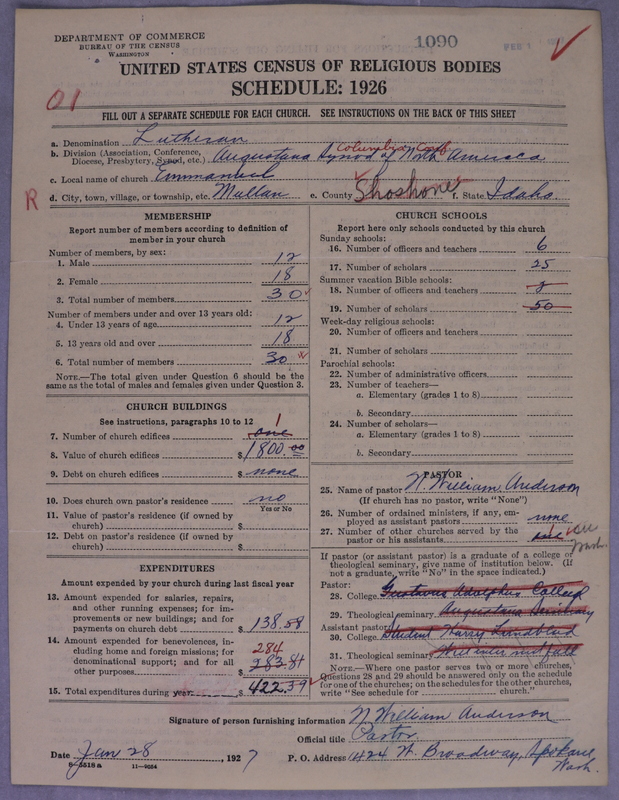 DEPARTMENT OF COMMERCE
BUREAU OF THE CENSUS
WASHINGTON
1090
FEB 1
UNITED STATES CENSUS OF RELIGIOUS BODIES
SCHEDULE: 1926
01
FILL OUT A SEPARATE SCHEDULE FOR EACH CHURCH. SEE INSTRUCTIONS ON THE BACK OF THIS SHEET
a. Denomination Lutheran
b. Division (Association, Conference, Diocese, Presbytery, Synod, etc.) Augustana Synod of North America
Columbia Conf
c. Local name of church Emmanuel
R
d. City, town, village, or township, etc. Mullan e. County Shoshone f. State Idaho.
MEMBERSHIP
Report number of members according to definition of member in your church
Number of members, by sex:
1. Male 12
2. Female 18
3. Total number of members 30
Number of members under and over 13 years old:
4. Under 13 years of age 12
5. 13 years old and over 18
6. Total number of members 30
NOTE.—The total given under Question 6 should be the same as the total of males and females given under Question 3.
CHURCH BUILDINGS
See instructions, paragraphs 10 to 12
7. Number of church edifices one 1
8. Value of church edifices $ 1800.00
9. Debt on church edifices $ none
10. Does church own pastor's residence no
Yes or No
11. Value of pastor's residence (if owned by church) $
12. Debt on pastor's residence (if owned by church) $
EXPENDITURES
Amount expended by your church during last fiscal year
13. Amount expended for salaries, repairs, and other running expenses; for improvements or new buildings; and for payments on church debt $ 138.58
14. Amount expended for benevolences, including home and foreign missions; for denominational support; and for all other purposes $ 283.81
284
15. Total expenditures during year $ 422.39
CHURCH SCHOOLS
Report here only schools conducted by this church
Sunday schools:
16. Number of officers and teachers 6
17. Number of scholars 25
Summer vacation Bible schools:
18. Number of officers and teachers
19. Number of scholars 50
Week-day religious schools:
20. Number of officers and teachers
21. Number of scholars
Parochial schools:
22. Number of administrative officers
23. Number of teachers—
a. Elementary (grades 1 to 8)
b. Secondary
24. Number of scholars—
a. Elementary (grades 1 to 8)
b. Secondary
PASTOR
25. Name of pastor N. William Anderson
(If church has no pastor, write "None")
26. Number of ordained ministers, if any, employed as assistant pastors none
27. Number of other churches served by the pastor or his assistants one
Wash.
If pastor (or assistant pastor) is a graduate of a college or theological seminary, give name of institution below. (If not a graduate, write "No" in the space indicated.)
Pastor:
28. College Gustavus Adolphus College
29. Theological seminary Augustana Seminary
Assistant pastor:
30. College Student Harry Lundblad
31. Theological seminary
NOTE.—Where one pastor serves two or more churches, Questions 28 and 29 should be answered only on the schedule for one of the churches; on the schedules for the other churches, write "See schedule for church."
Signature of person furnishing information N. William Anderson
Official title Pastor
Date Jan 28, 1927 P. O. Address 1424 W. Broadway, Spokane Wash.
8-5518a 11-9054